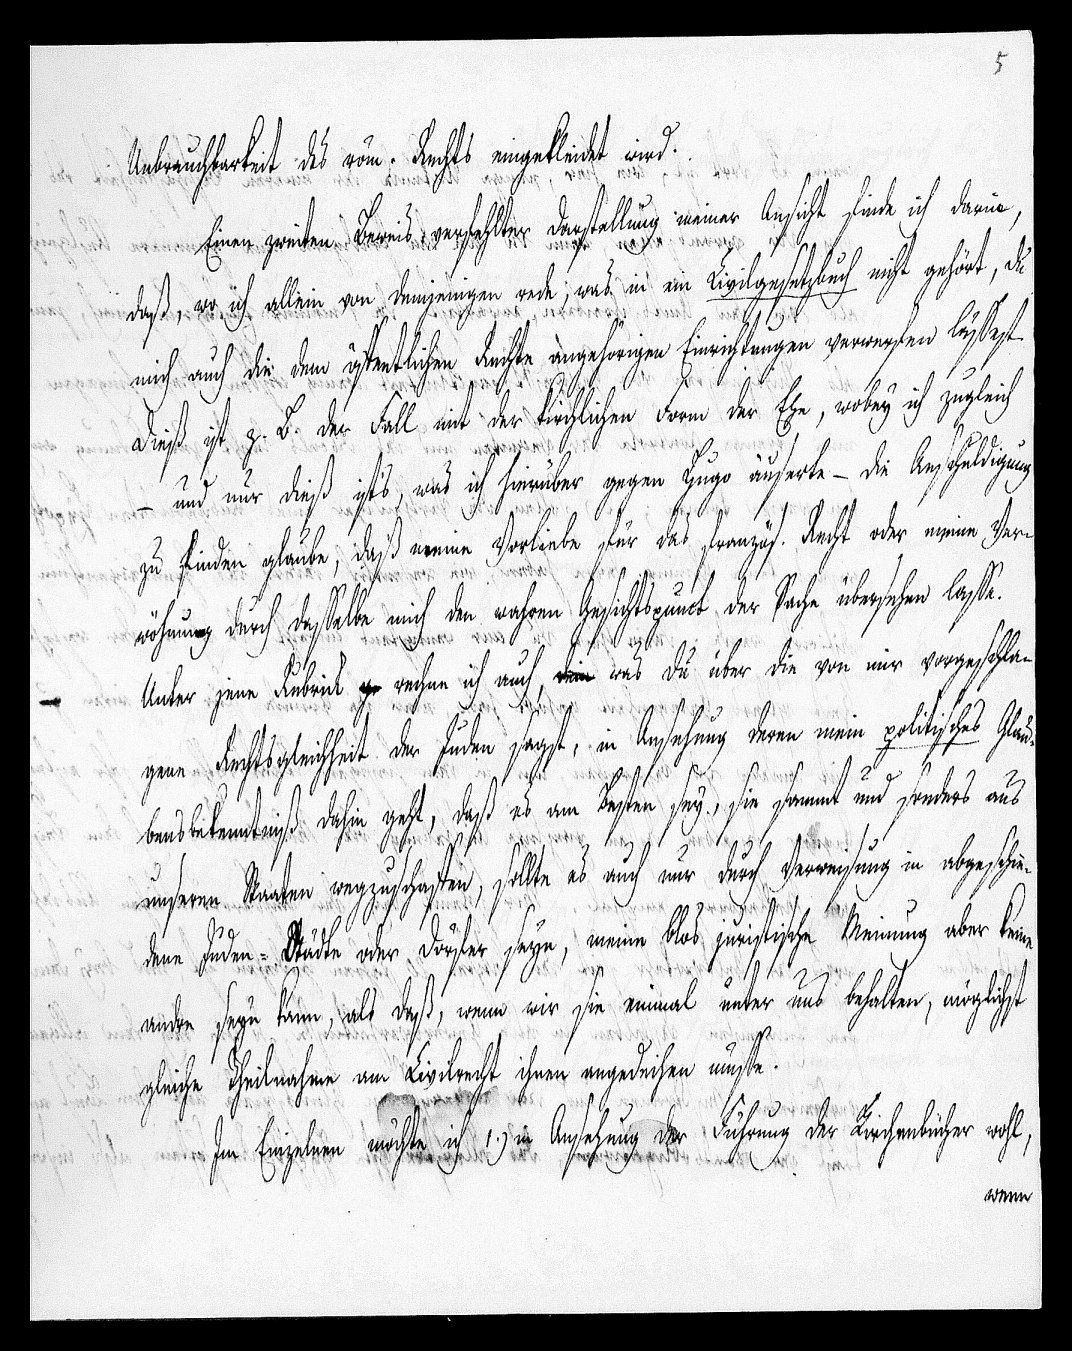 5
Unbrauchbarkeit des röm. Rechts eingekleidet wird.
Einen zweiten Beweis verfehlter Darstellung meiner Ansicht finde ich darin,
daß, wo ich allein von demjenigen rede, was in ein Civilgesetzbuch nicht gehört, du
mich auch die dem öffentlichen Rechte angehörigen Einrichtungen verwerfen lässest.
Dieß ist z. B. der Fall mit der kirchlichen Form der Ehe, wobey ich zugleich
– und nur dieß ist's, was ich hierüber gegen Hugo äuserte – die Anschuldigung
zu finden glaube, daß meine Vorliebe für das französ. Recht oder meine Ver-
wöhnung durch dasselbe mich den wahren Gesichtspunct der Sache übersehen lasse.
Unter jene Rubrick rechne ich auch, was du über die von mir vorgeschla-
gene Rechtsgleichheit der Juden sagst, in Ansehung deren mein politisches Glau-
bensbekenntniß dahin geht, daß es am Besten sey, sie sammt und sonders aus
unseren Staaten wegzuschaffen, sollte es auch nur durch Verweisung in abgeschie-
dene Juden-Städte oder Dörfer seyn, meine blos juristische Meinung aber keine
andre seyn kann, als daß, wenn wir sie einmal unter uns behalten, möglichst
gleiche Theilnahme am Civilrecht ihnen angedeihen müsse.
Im Einzelnen möchte ich 1.) in Ansehung der Führung der Kirchenbücher wohl,
wenn